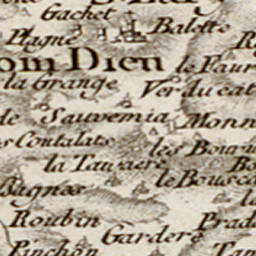 Gachet
Plagne
Balette
om Dien
le Faur
la Grange
Verducat
de Sauvemia
Monn
s Coutalats
les Bouru
la Tauzere
le Bousca
Bagnos
Roubin
Prad
Gardere
Pinchon